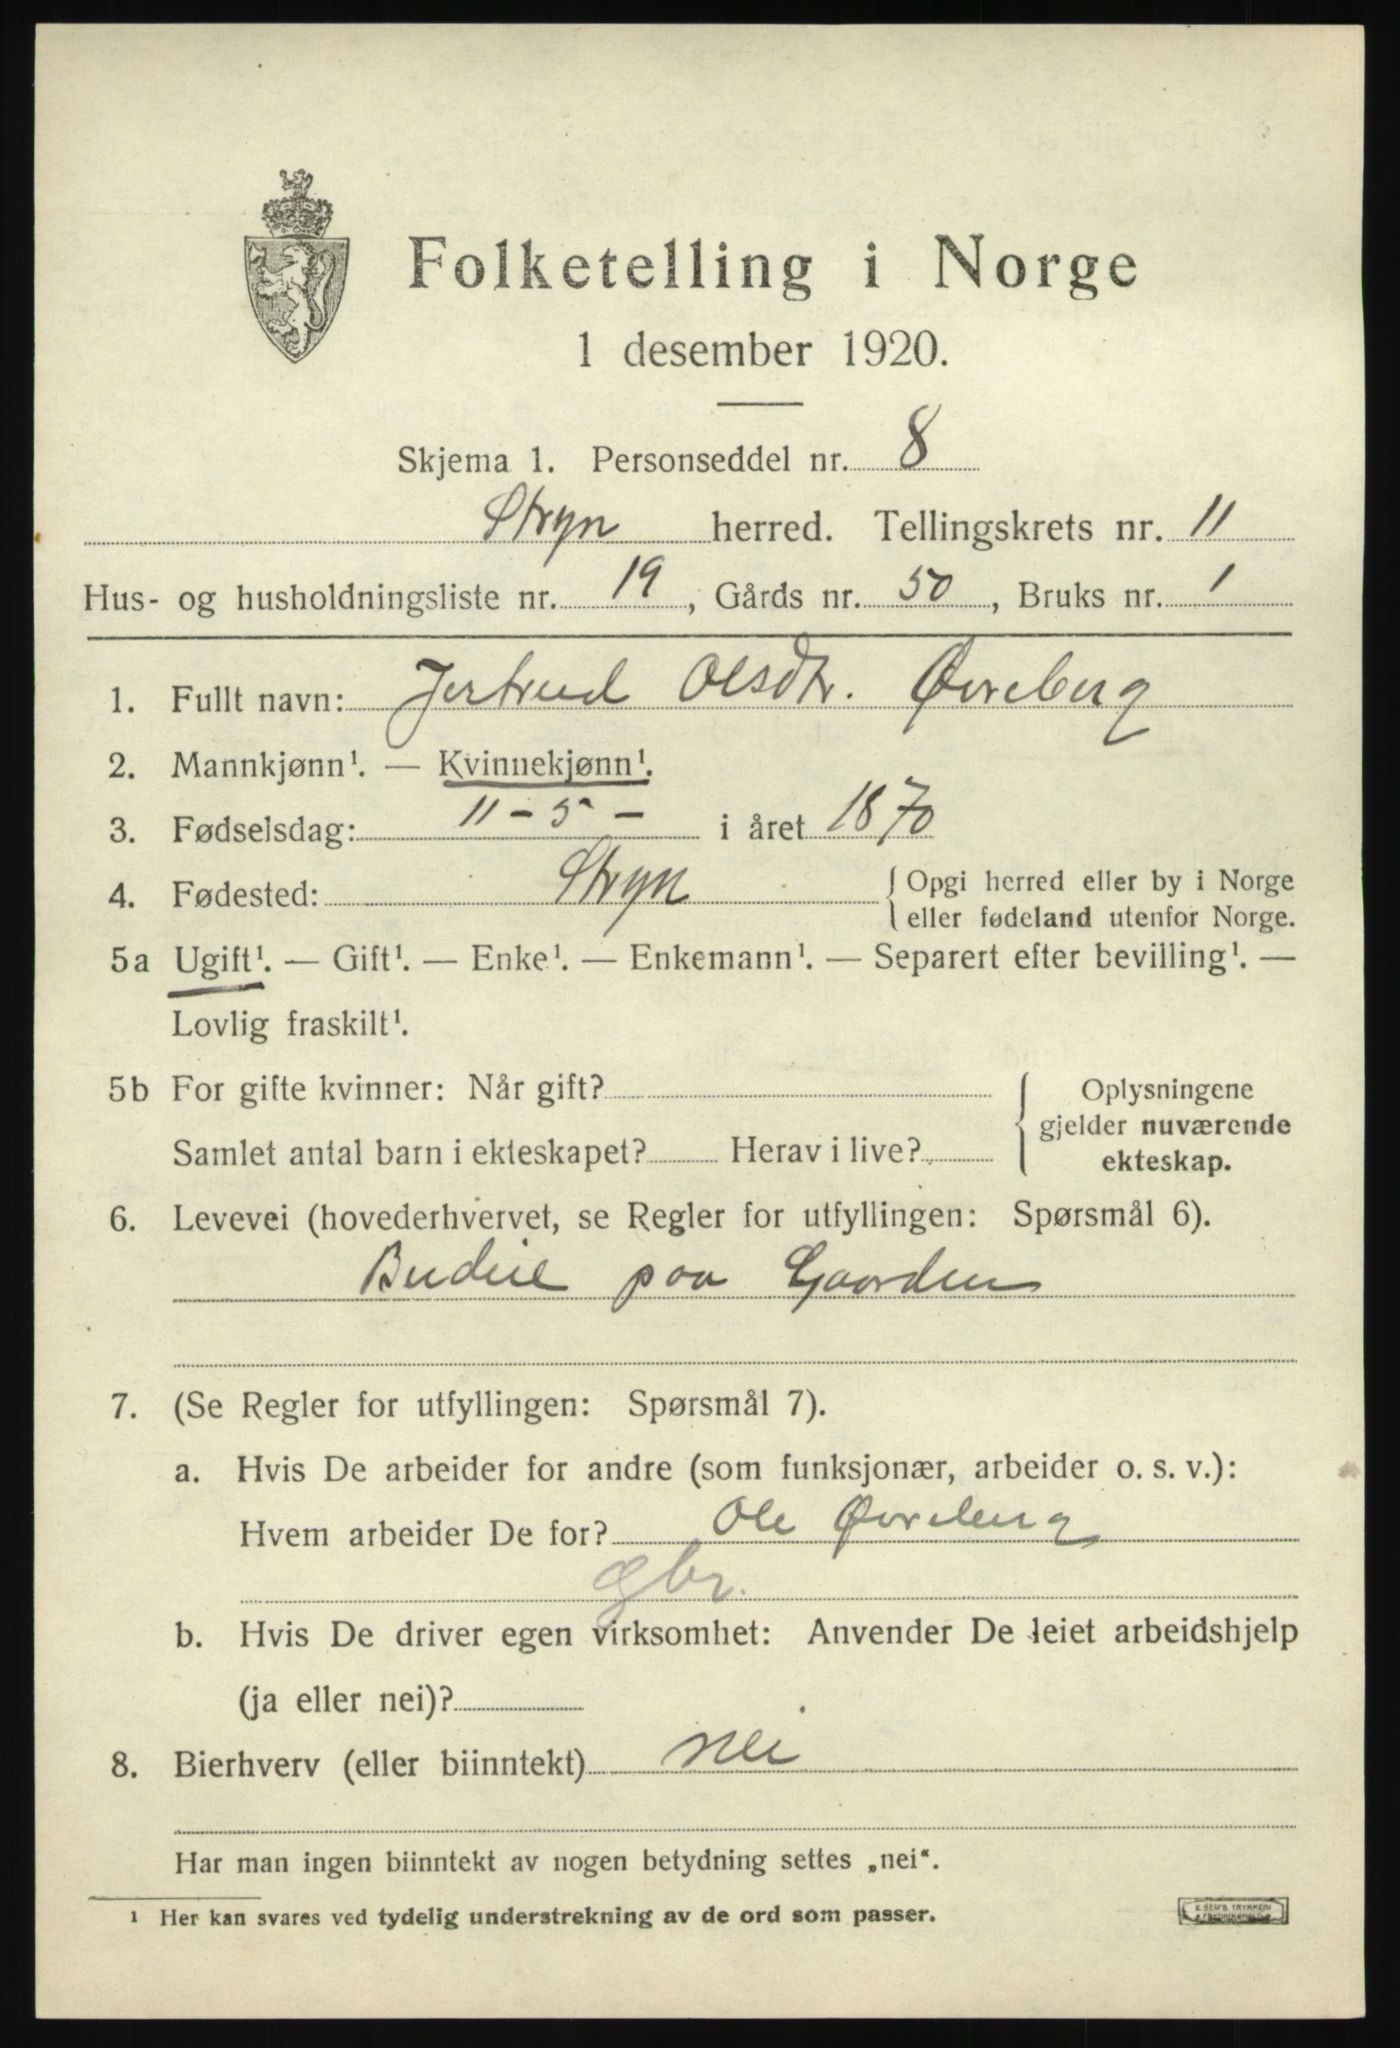 Folketelling i Norge
1 desember 1920.
Skjema 1. Personseddel nr. 8
Stryn herred. Tellingskrets nr. 11
Hus- og husholdningsliste nr. 19, Gårds nr. 50, Bruks nr. 1
1. Fullt navn: Jertrud Olsdtr. Øvreberg
2. Mannkjønn¹. — Kvinnekjønn¹.
3. Fødselsdag: 11 - 5 - i året 1870
4. Fødested: Stryn { Opgi herred eller by i Norge
eller fødeland utenfor Norge.
5a Ugift¹. — Gift¹. — Enke¹. — Enkemann¹. — Separert efter bevilling¹. —
Lovlig fraskilt¹.
5b For gifte kvinner: Når gift?
Samlet antal barn i ekteskapet? Herav i live?
Oplysningene
gjelder nuværende
ekteskap.
6. Levevei (hovederhvervet, se Regler for utfyllingen: Spørsmål 6).
Budeie paa Gaarden
7. (Se Regler for utfyllingen: Spørsmål 7).
a. Hvis De arbeider for andre (som funksjonær, arbeider o. s. v.):
Hvem arbeider De for? Ole Øvreberg
gbr.
b. Hvis De driver egen virksomhet: Anvender De leiet arbeidshjelp
(ja eller nei)?
8. Bierhverv (eller biinntekt) nei
Har man ingen biinntekt av nogen betydning settes „nei“.
¹ Her kan svares ved tydelig understrekning av de ord som passer.